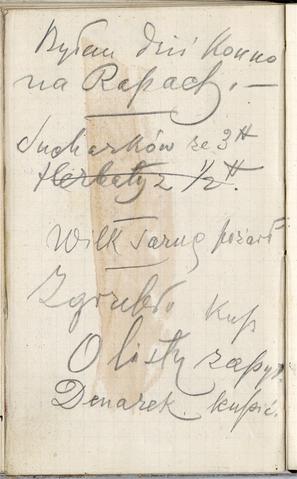 Byłam dziś konno
na Rapach. —
Sucharków ze 3 ℔
Herbaty z 1/2 ℔.
Wilk sarnę pożarł
Zgrzebło kup
O listy zapyt.
Denarek kupić.